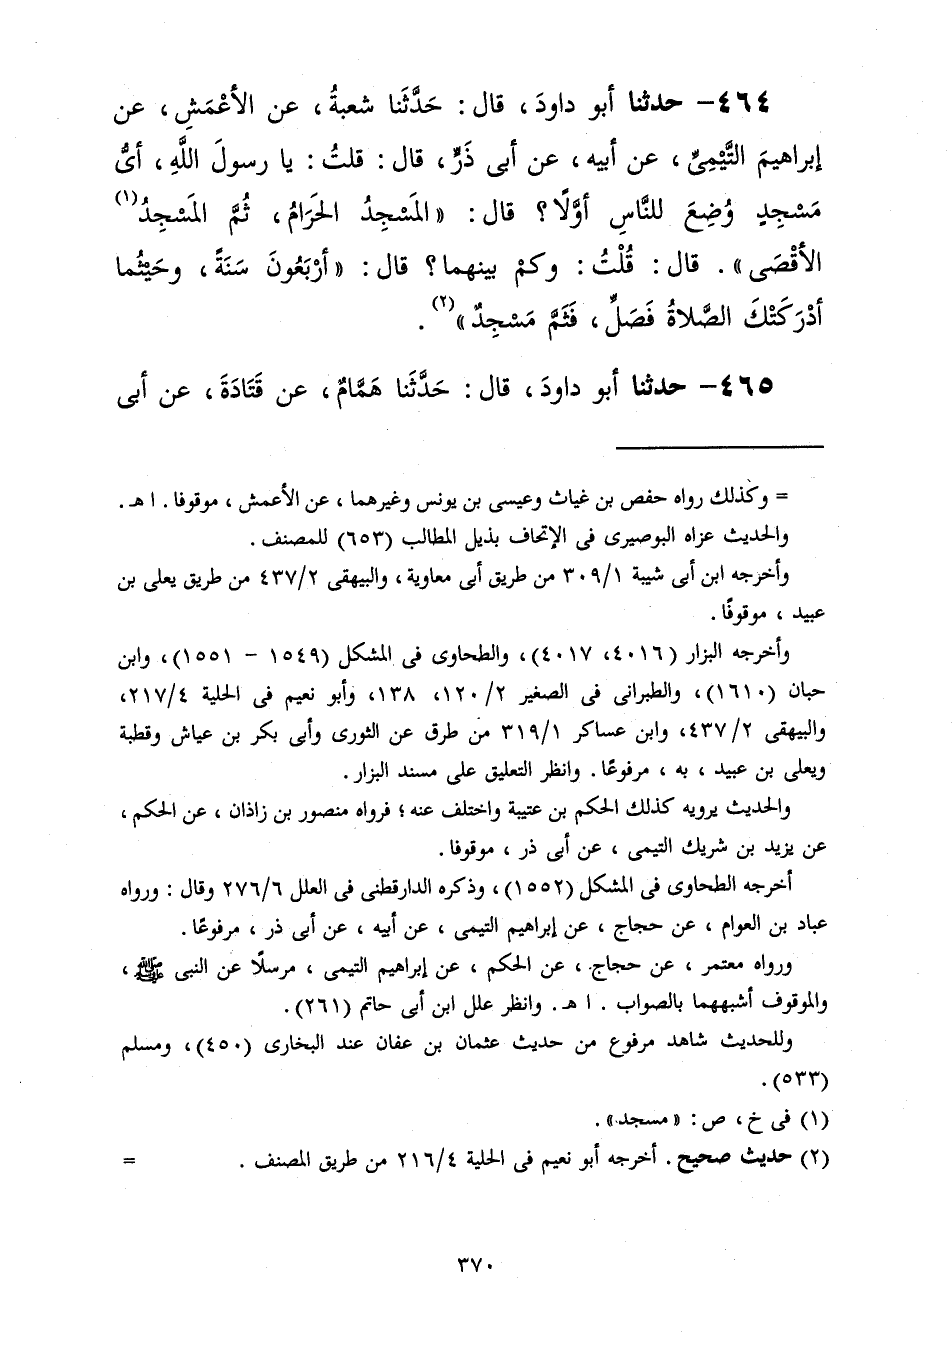 ٤٦٤- حدثنا أبو داودَ ، قال : حَدَّثَنا شعبةُ ، عن الأَعْمَشِ ، عن
إبراهيمَ التَّيْمِىِّ ، عن أبيه ، عن أبى ذَرٍّ ، قال : قلتُ : يا رسولَ اللَّهِ ، أىُّ
مَسْجِدٍ وُضِعَ للنَّاسِ أوَّلًا ؟ قال : « المَسْجِدُ الحَرَامُ ، ثُمَّ المَسْجِدُ(١)
الأَقْصَى» . قال : قُلْتُ : وكمْ بينهما ؟ قال : « أَرْبَعُونَ سَنَةً ، وحَيْثُما
أَدْرَكَتْكَ الصَّلاةُ فَصَلِّ ، فَثَمَّ مَسْجِدٌ »(٢) .
٤٦٥- حدثنا أبو داودَ ، قال : حَدَّثَنا هَمَّامٌ ، عن قَتَادَةَ ، عن أبى
= وكذلك رواه حفص بن غياث وعيسى بن يونس وغيرهما ، عن الأعمش ، موقوفا . ا هـ .
والحديث عزاه البوصيرى فى الإتحاف بذيل المطالب (٦٥٣) للمصنف .
وأخرجه ابن أبى شيبة ٣٠٩/١ من طريق أبى معاوية ، والبيهقى ٤٣٧/٢ من طريق يعلى بن
عبيد ، موقوفًا .
وأخرجه البزار (٤٠١٦، ٤٠١٧)، والطحاوى فى المشكل (١٥٤٩ - ١٥٥١)، وابن
حبان (١٦١٠)، والطبرانى فى الصغير ١٢٠/٢، ١٣٨، وأبو نعيم فى الحلية ٢١٧/٤،
والبيهقى ٤٣٧/٢، وابن عساكر ٣١٩/١ من طرق عن الثورى وأبى بكر بن عياش وقطبة
ويعلى بن عبيد ، به ، مرفوعًا . وانظر التعليق على مسند البزار .
والحديث يرويه كذلك الحكم بن عتيبة واختلف عنه ؛ فرواه منصور بن زاذان ، عن الحكم ،
عن يزيد بن شريك التيمى ، عن أبى ذر ، موقوفا .
أخرجه الطحاوى فى المشكل (١٥٥٢)، وذكره الدارقطنى فى العلل ٢٧٦/٦ وقال : ورواه
عباد بن العوام ، عن حجاج ، عن إبراهيم التيمى ، عن أبيه ، عن أبى ذر ، مرفوعًا .
ورواه معتمر ، عن حجاج ، عن الحكم ، عن إبراهيم التيمى ، مرسلًا عن النبى ﷺ ،
والموقوف أشبههما بالصواب . ا هـ . وانظر علل ابن أبى حاتم (٢٦١).
وللحديث شاهد مرفوع من حديث عثمان بن عفان عند البخارى (٤٥٠)، ومسلم
(٥٣٣).
(١) فى خ ، ص : « مسجد» .
(٢) حديث صحيح . أخرجه أبو نعيم فى الحلية ٢١٦/٤ من طريق المصنف . =
٣٧٠